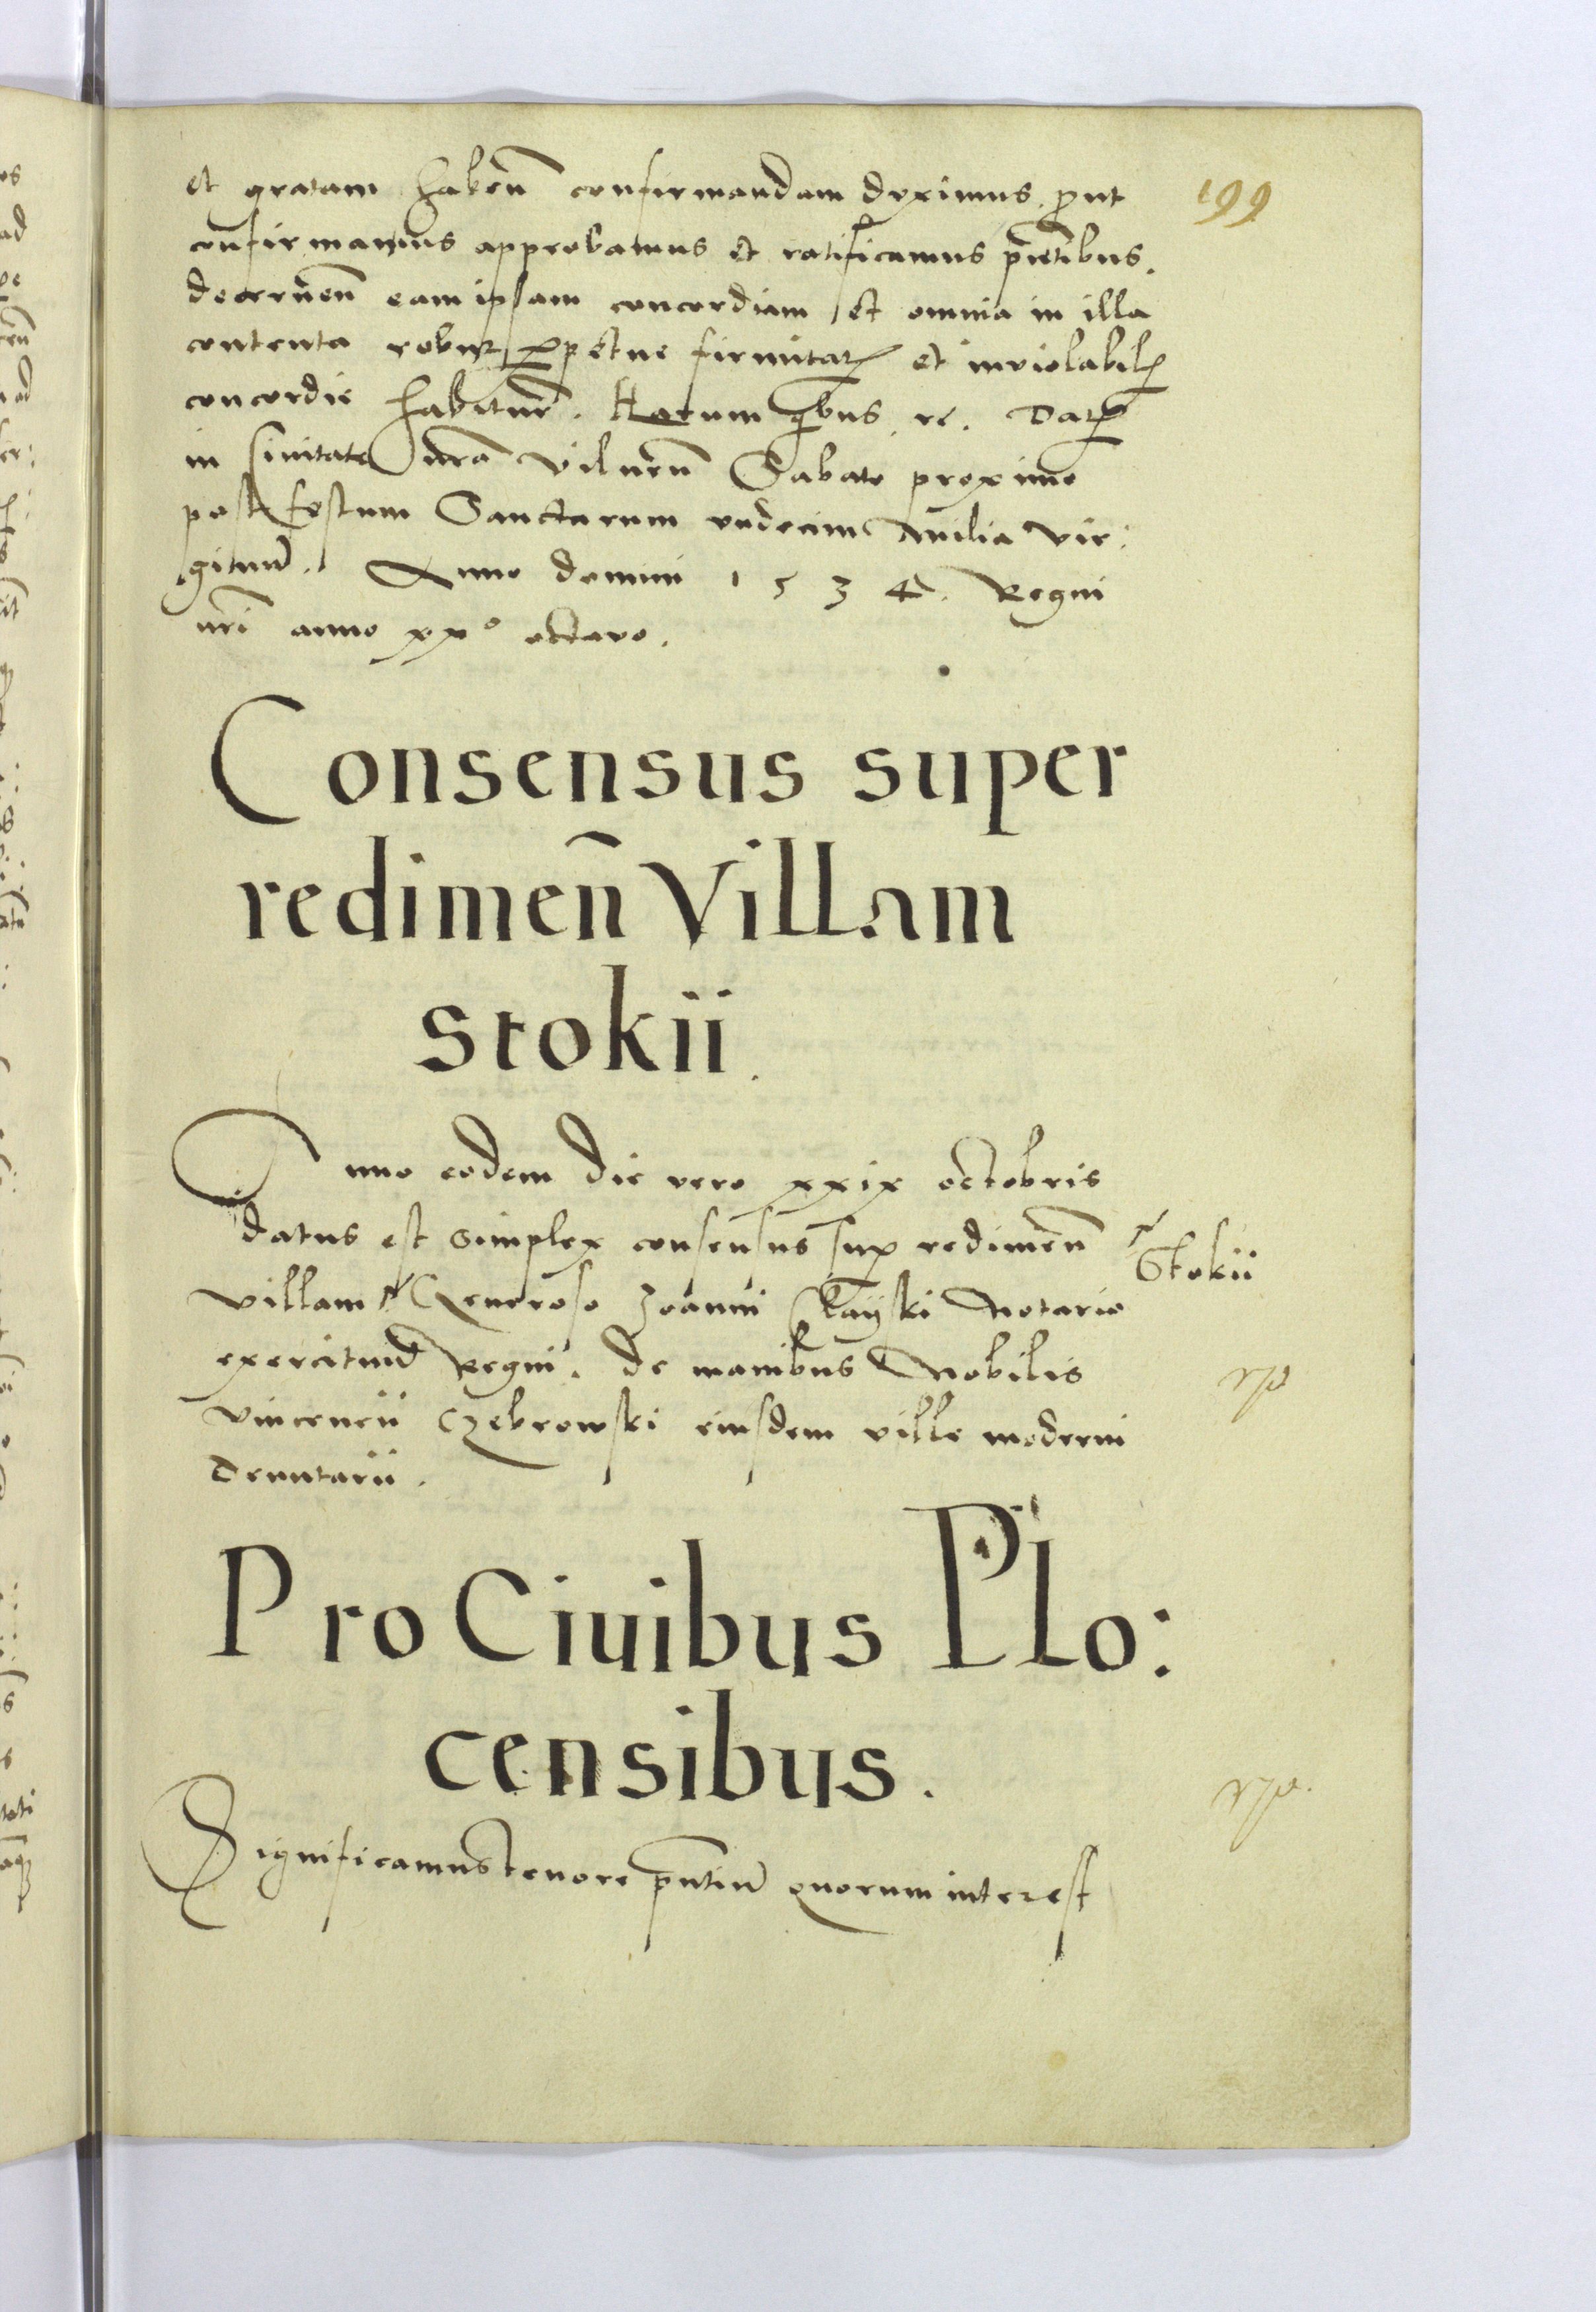 et gratam haben̄ confirmandam duximus. prout
199
confirmamus approbamus et ratificamus pn̄tibus.
decernen̄ eam ipsam concordiam et omnia in illa
contenta robur perpetue firmitatis et inviolabilis
concordie habitur̄. Harum quibus rc. Datum
in Civitate nrā Vilnen̄ Sabato proximo
post festum Sanctarum undecim Milia Vir:
ginum. Anno domini 1534. Regni
nrī anno xxº octavo.
Consensus super
redimen̄ Villam
stokii.
Anno eodem die vero xxix octobris
datus est simplex consensus sup redimen̄
Stokii
villam Generoso Joanni Notario
exercituum Regni. de manibus Nobilis
Vincencii Czebrowski eiusdem ville moderni
Tenutarii.
Pro Ciuibus Plo:
censibus.
Significamus tenore pn̄tium quorum interest